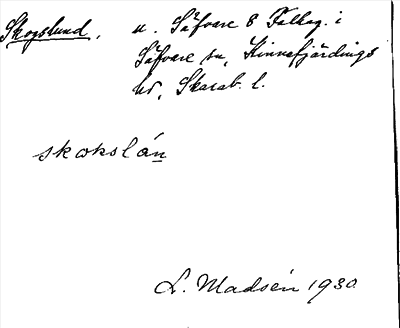 Skogslund, u. Säfvare 8 Fallag. i
Säfvare sn, Kinnefjärdings
hd, Skarab. l.
skokslán
L. Madsén 1930